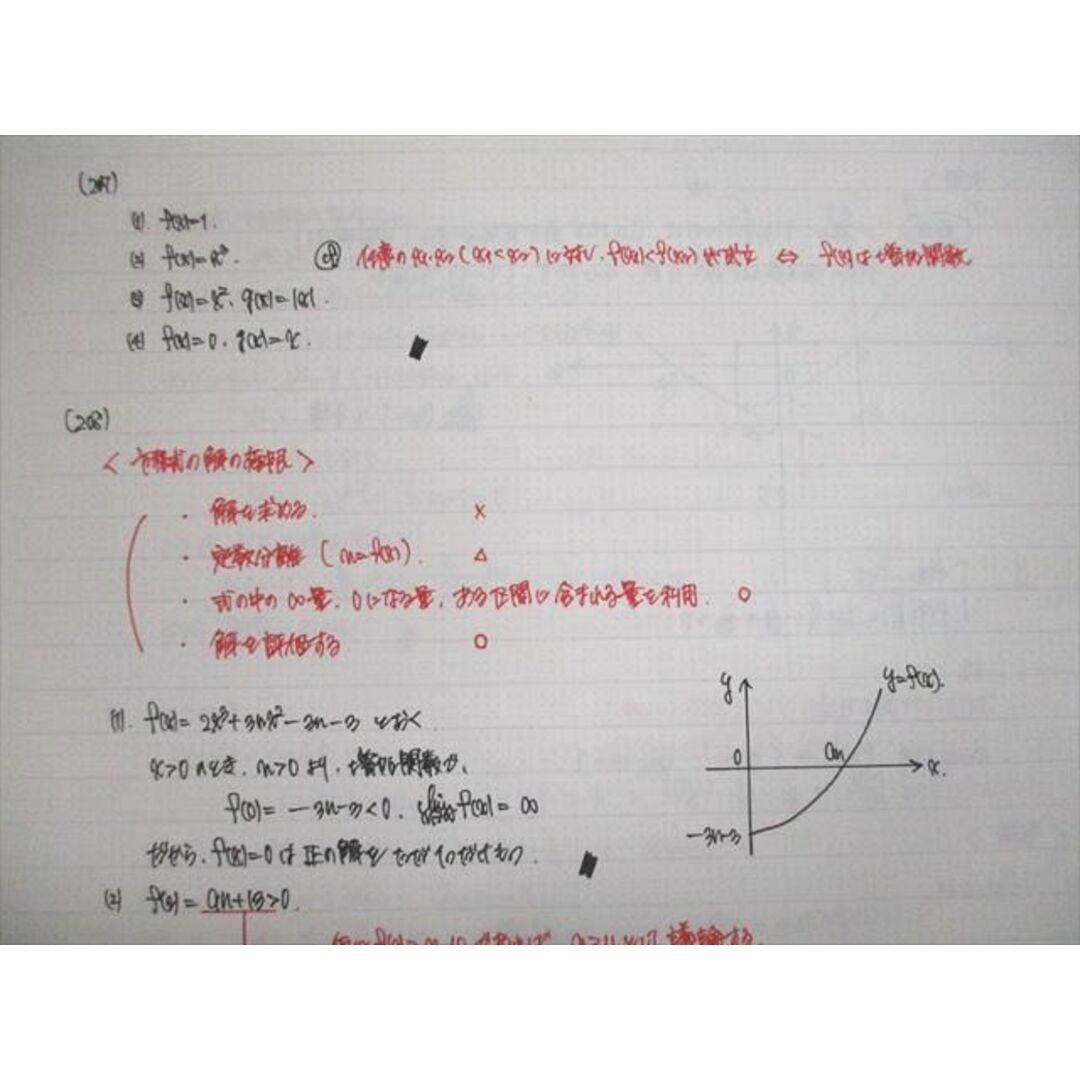 (207)
(1) f(x)=1.
(2) f(x)=x³.
任意の x₁, x₂ (x₁<x₂) に対し, f(x₁)<f(x₂) が成立 ⇔ f(x)は増加関数
(3) f(x)=x², g(x)=|x|.
(4) f(x)=0, g(x)=x.
(208)
<方程式の解の極限>
・解を求める. ×
・定数分離 (n=f(x)). △
・式の中の∞量, 0になる量, ある区間に含まれる量を利用. ○
・解を評価する. ○
(1). f(x)=2x³+3nx²-3n-3 とおく.
x>0 のとき, n>0 より, 増加関数で,
f(0)= -3n-3<0, lim f(x)=∞
だから, f(x)=0 は正の解をただ1つだけもつ.
y
y=f(x).
0
an
x.
-3n-3
(2) >0.
議論する.